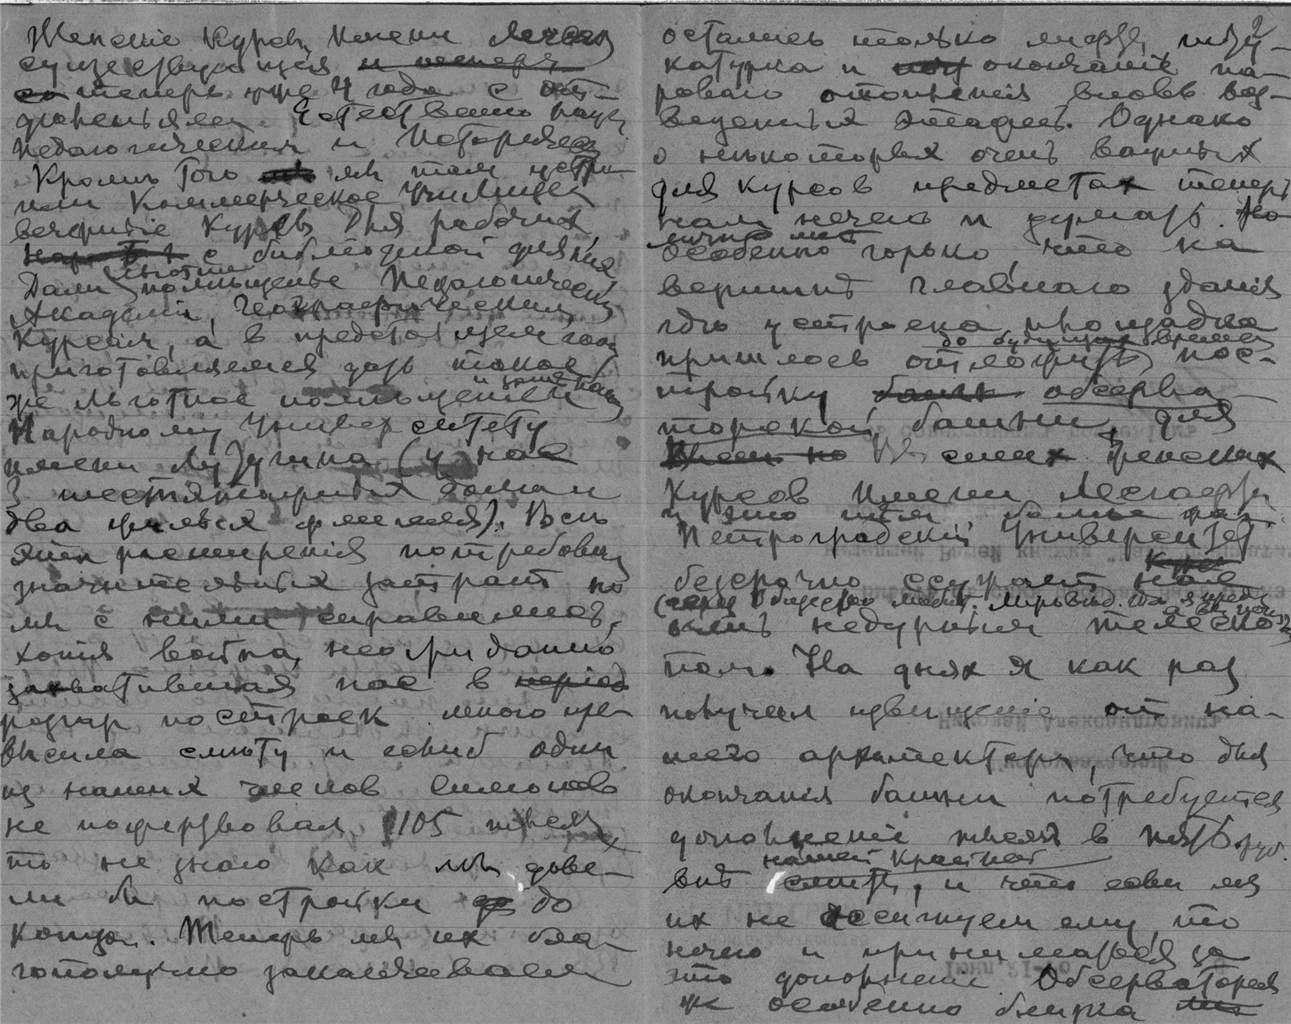 Женскіе Курсы имени Лесга
существующіе и теперь
теперь уже 4 года с от-
деленіями Естественно науч
Педагогическим и Историческ
Кромѣ того мы там устро-
или Коммерческое Училище
вечерніе Курсы для рабочих
с библіотекой для них
Дали льготное помѣщеніе Педагогической
Академіи, Географическим
Курсам, а в предстоящем году
приготовляемся дать такое
же льготное помѣщеніе и
Народному Университету
имени Лутугина (у нас
3 шестиэтажных дома и
два цѣлых флигеля). Всѣ
эти расширенія потребовали
значительных затрат но
мы с ними справились,
хотя война, неожиданно
захватившая нас в період
разгар построек много пре-
высила смѣту и если б один
из наших членов
не пожертвовал 105 тысяч
то не знаю как мы дове-
ли бы постройки до
конца. Теперь мы их бла-
гополучно заканчиваем
остались только штука-
катурка и окончаніе па-
роваго отопленія вновь воз-
веденных этажей. Однако
о нѣкоторых очень важных
для курсов предметах теперь
нам нечего и думать.
особенно горько, что на
вершинѣ главнаго зданія
гдѣ устроена площадка
до будущаго времени
пришлось отложить пос-
тройку обсерва-
торской башни, для
Женских
Курсов имени Лесгафта
Петроградскій Университет
безсрочно ссужает
(через Общество любит. Міровѣд.
недурным телеско-
пом. На днях я как раз
получил извѣщеніе от на-
шего архитектора, что для
окончанія башни потребуется
дополненіе тысяч в пять руб.
нашей краткой
смѣты, и что если мы
их не ассигнуем ему, то
нечего и приниматься за
это дополненіе. Обсерваторія
же особенно близка